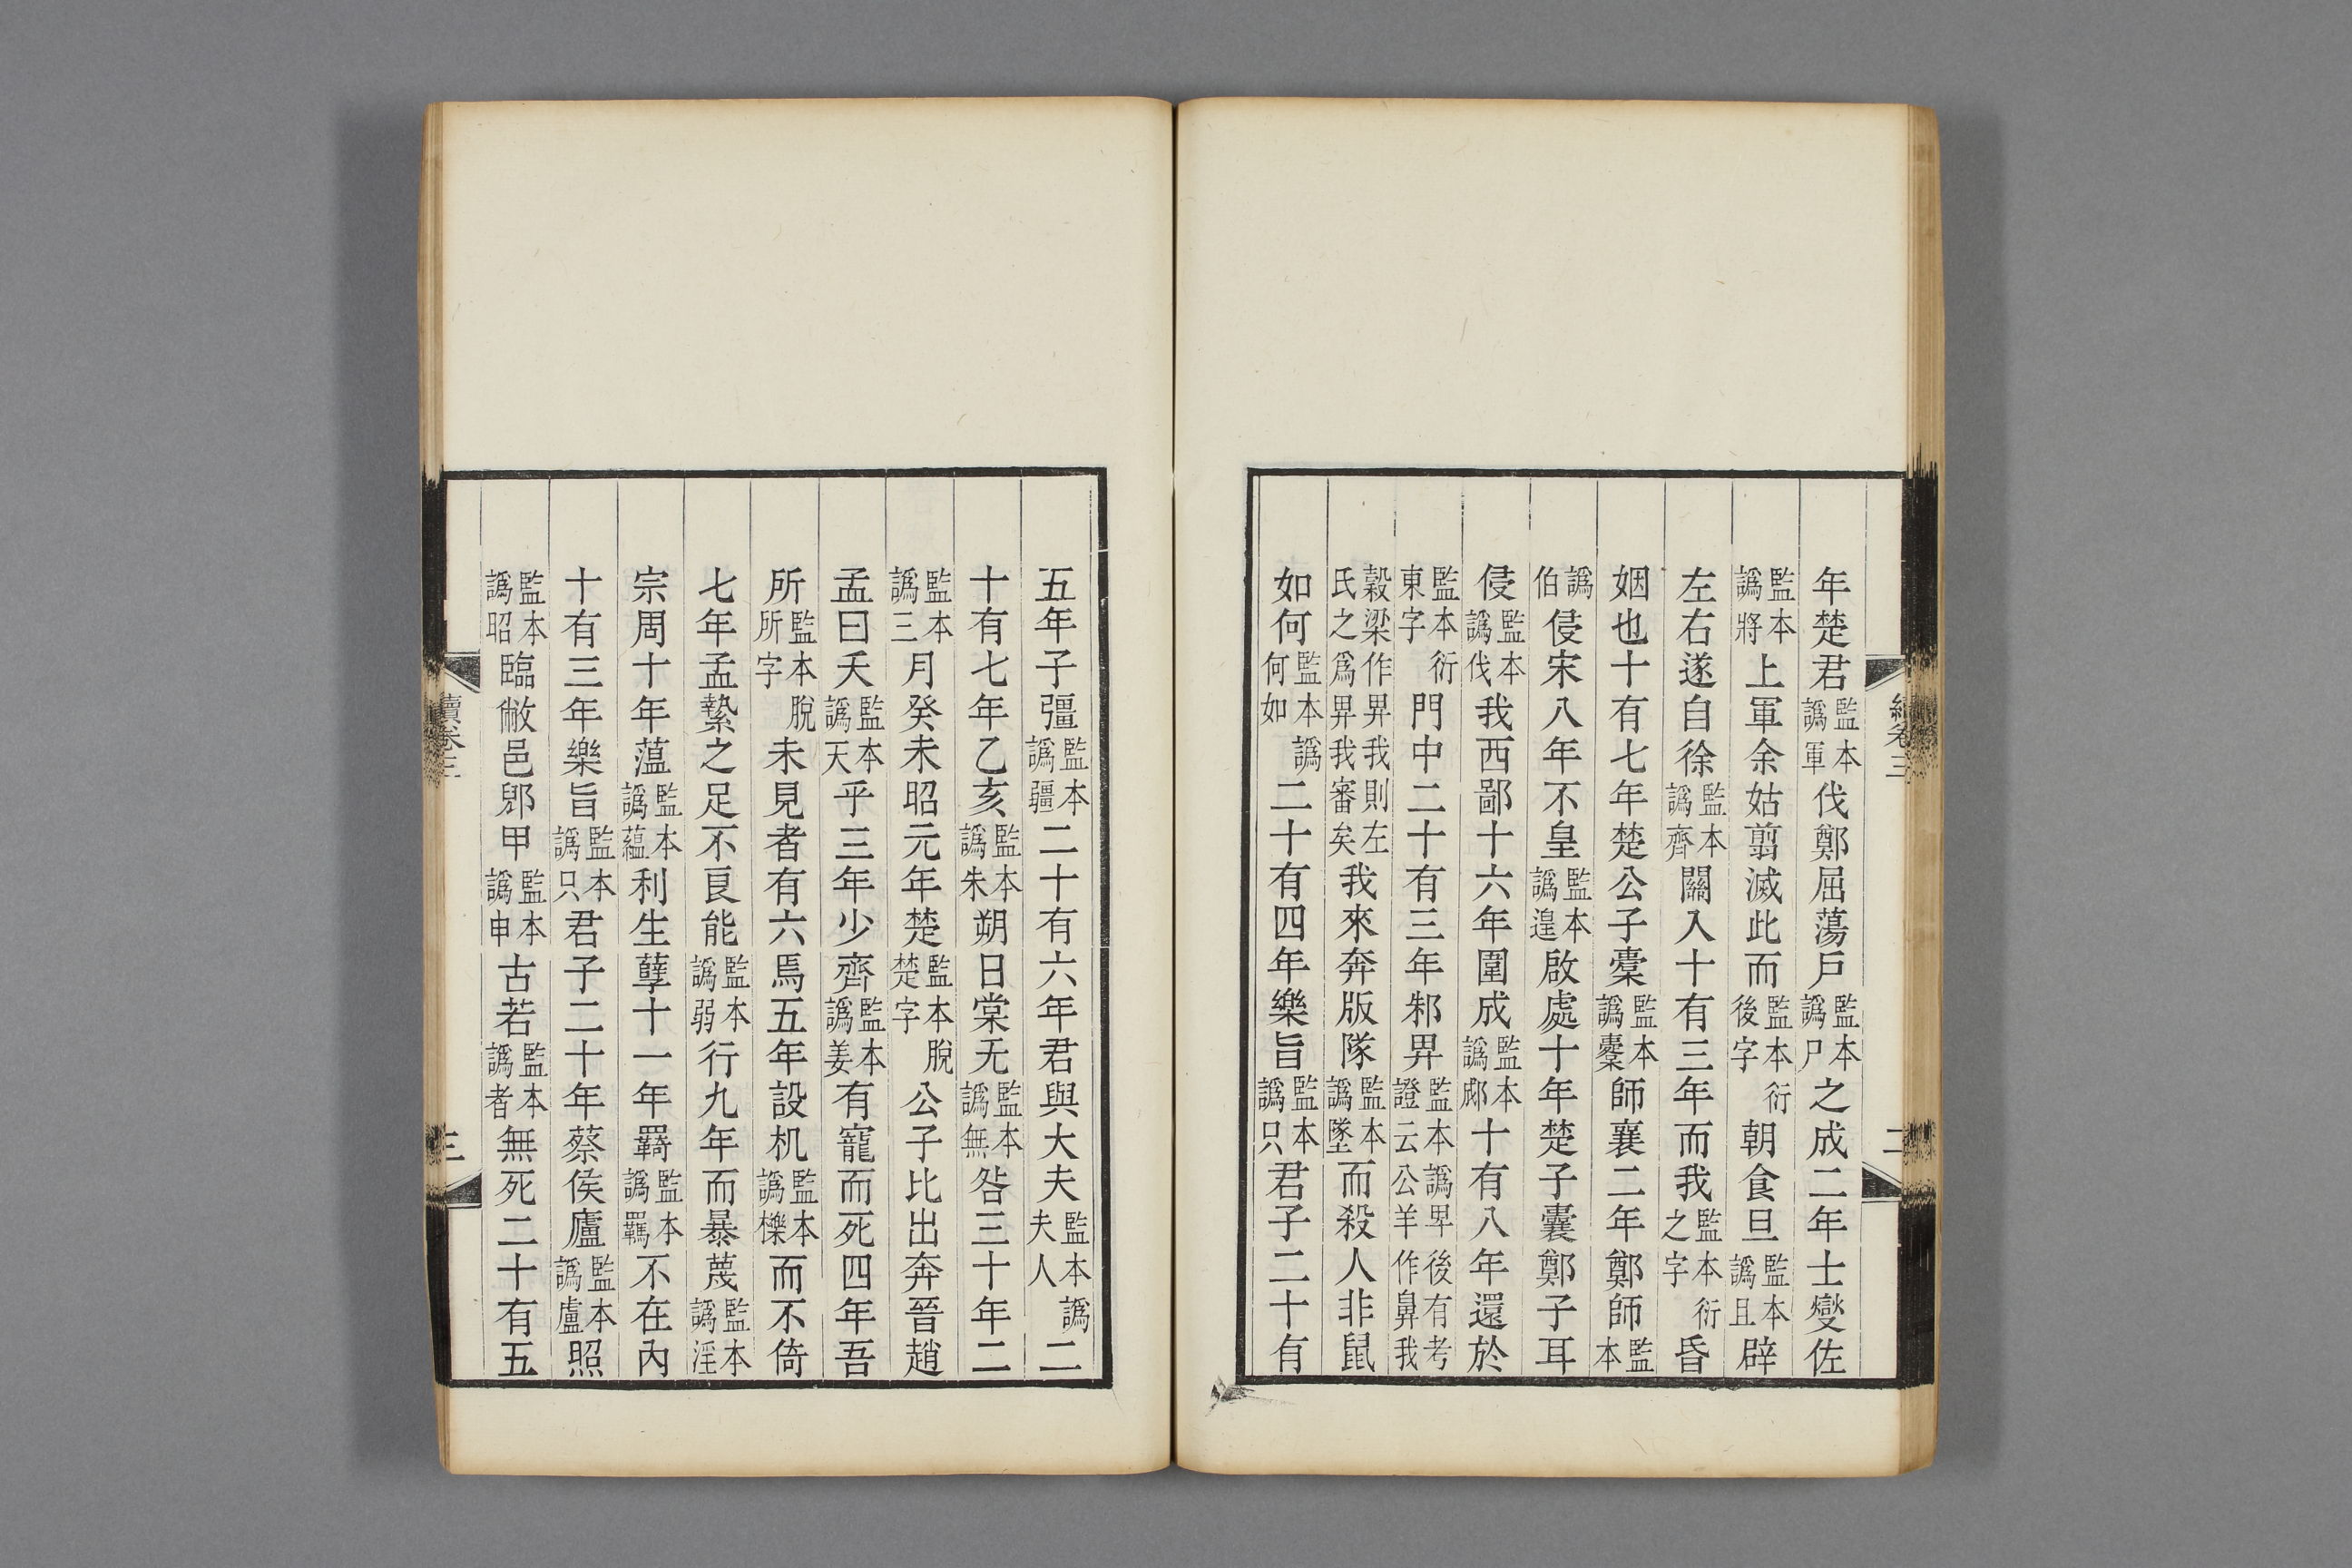 年楚君監本譌軍伐鄭屈蕩戶監本譌尸之成二年士燮佐
監本譌將上軍余姑翦滅此而監本後字衍朝食旦監本譌且辟
左右遂自徐監本譌齊關入十有三年而我監本之字衍昏
姻也十有七年楚公子橐監本譌櫜師襄二年鄭師監本
譌伯侵宋八年不皇監本譌遑啟處十年楚子囊鄭子耳
侵監本譌伐我西鄙十六年圍成監本譌郕十有八年還於
監本東字衍門中二十有三年邾畀監本譌𢌿後有考證云公羊作鼻我
穀梁作畀我則左氏之爲畀我審矣我來奔版隊監本譌墜而殺人非鼠
如何監本譌何如二十有四年樂旨監本譌只君子二十有
續卷三
二
五年子彊監本譌疆二十有六年君與大夫監本譌夫人二
十有七年乙亥監本譌朱朔日棠无監本譌無咎三十年二
監本譌三月癸未昭元年楚監本脫楚字公子比出奔晉趙
孟曰夭監本譌天乎三年少齊監本譌姜有寵而死四年吾
所監本脫所字未見者有六焉五年設机監本譌檪而不倚
七年孟縶之足不良能監本譌弱行九年而暴蔑監本譌淫
宗周十年薀監本譌蘊利生孽十一年羇監本譌羈不在內
十有三年樂旨監本譌只君子二十年蔡侯廬監本譌盧照
監本譌昭臨敝邑郥甲監本譌申古若監本譌者無死二十有五
續卷三
三